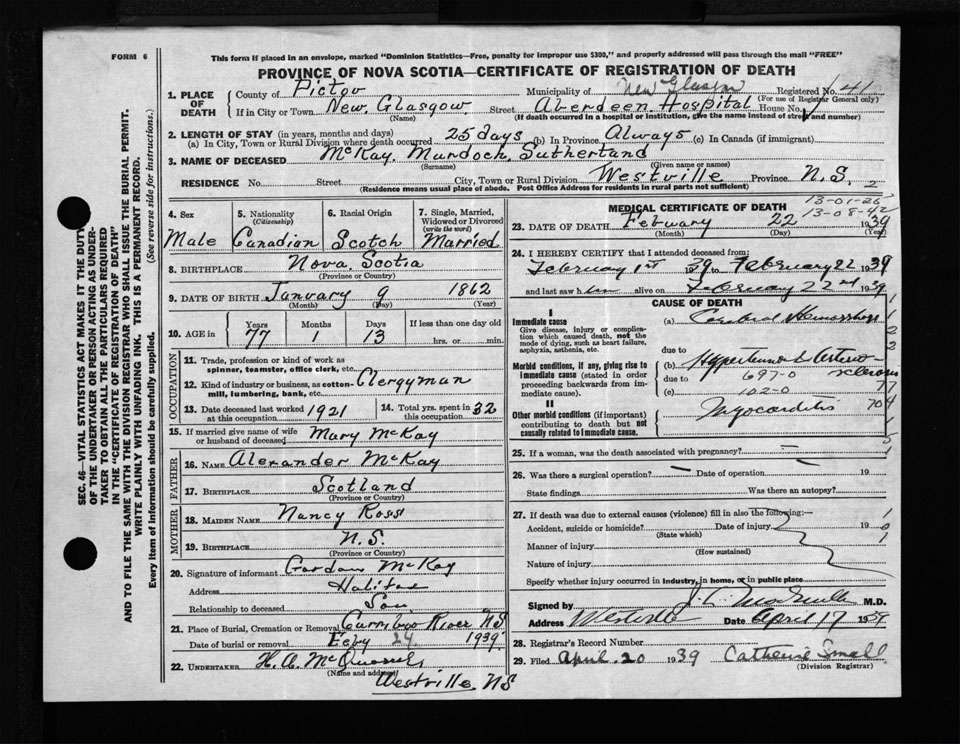 FORM 6
This form if placed in an envelope, marked "Dominion Statistics—Free, penalty for improper use $300," and properly addressed will pass through the mail "FREE"
PROVINCE OF NOVA SCOTIA—CERTIFICATE OF REGISTRATION OF DEATH
1. PLACE OF DEATH
County of Pictou Municipality of New Glasgow Registered No. 41
(For use of Registrar General only)
If in City or Town New Glasgow Street Aberdeen Hospital House No.
(Name) (If death occurred in a hospital or institution, give the name instead of street and number)
2. LENGTH OF STAY (in years, months and days)
(a) In City, Town or Rural Division where death occurred 25 days (b) In Province Always (c) In Canada (if immigrant)
3. NAME OF DECEASED McKay, Murdoch, Sutherland
(Surname) (Given name or names)
RESIDENCE No. Street City, Town or Rural Division Westville Province N.S. 2
(Residence means usual place of abode. Post Office Address for residents in rural parts not sufficient)
4. Sex Male
5. Nationality (Citizenship) Canadian
6. Racial Origin Scotch
7. Single, Married, Widowed or Divorced (write the word) Married
8. BIRTHPLACE Nova Scotia
(Province or Country)
9. DATE OF BIRTH January 9 1862
(Month) (Day) (Year)
10. AGE in Years 77 Months 1 Days 13 If less than one day old
hrs. or min.
OCCUPATION
11. Trade, profession or kind of work as spinner, teamster, office clerk, etc.
12. Kind of industry or business, as cotton-mill, lumbering, bank, etc. Clergyman
13. Date deceased last worked at this occupation 1921
14. Total yrs. spent in this occupation 32
15. If married give name of wife or husband of deceased Mary McKay
FATHER
16. NAME Alexander McKay
17. BIRTHPLACE Scotland
(Province or Country)
MOTHER
18. MAIDEN NAME Nancy Ross
19. BIRTHPLACE N.S.
(Province or Country)
20. Signature of informant Gordon McKay
Address Halifax
Relationship to deceased Son
21. Place of Burial, Cremation or Removal River NS
Date of burial or removal Feby 24 1939
22. UNDERTAKER H. A.
(Name and address)
Westville NS
MEDICAL CERTIFICATE OF DEATH
13-01-26
23. DATE OF DEATH February 22 1939
(Month) (Day) (Year)
24. I HEREBY CERTIFY that I attended deceased from:
February 1st 1939 to February 22 1939
and last saw him alive on February 22nd 1939
CAUSE OF DEATH
I
Immediate cause
Give disease, injury or complication which caused death, not the mode of dying, such as heart failure, asphyxia, asthenia, etc.
(a) Cerebral Hemorrhage
due to
Morbid conditions, if any, giving rise to immediate cause (stated in order proceeding backwards from immediate cause).
(b) Hypertension & Arterio-sclerosis
due to 697-0
(c) 102-0
II
Other morbid conditions (if important) contributing to death but not causally related to immediate cause.
Myocarditis
25. If a woman, was the death associated with pregnancy?
26. Was there a surgical operation? — Date of operation — 19
State findings Was there an autopsy?
27. If death was due to external causes (violence) fill in also the following:—
Accident, suicide or homicide? Date of injury 19
(State which)
Manner of injury
(How sustained)
Nature of injury
Specify whether injury occurred in industry, in home, or in public place
Signed by M.D.
Address Westville Date April 17 1939
28. Registrar's Record Number
29. Filed April 20 1939 Catherine Small
(Division Registrar)
SEC. 46—VITAL STATISTICS ACT MAKES IT THE DUTY
OF THE UNDERTAKER OR PERSON ACTING AS UNDER-
TAKER TO OBTAIN ALL THE PARTICULARS REQUIRED
IN THE "CERTIFICATE OF REGISTRATION OF DEATH"
AND TO FILE THE SAME WITH THE DIVISION REGISTRAR WHO SHALL ISSUE THE BURIAL PERMIT.
WRITE PLAINLY WITH UNFADING INK. THIS IS A PERMANENT RECORD.
Every item of information should be carefully supplied. (See reverse side for instructions.)